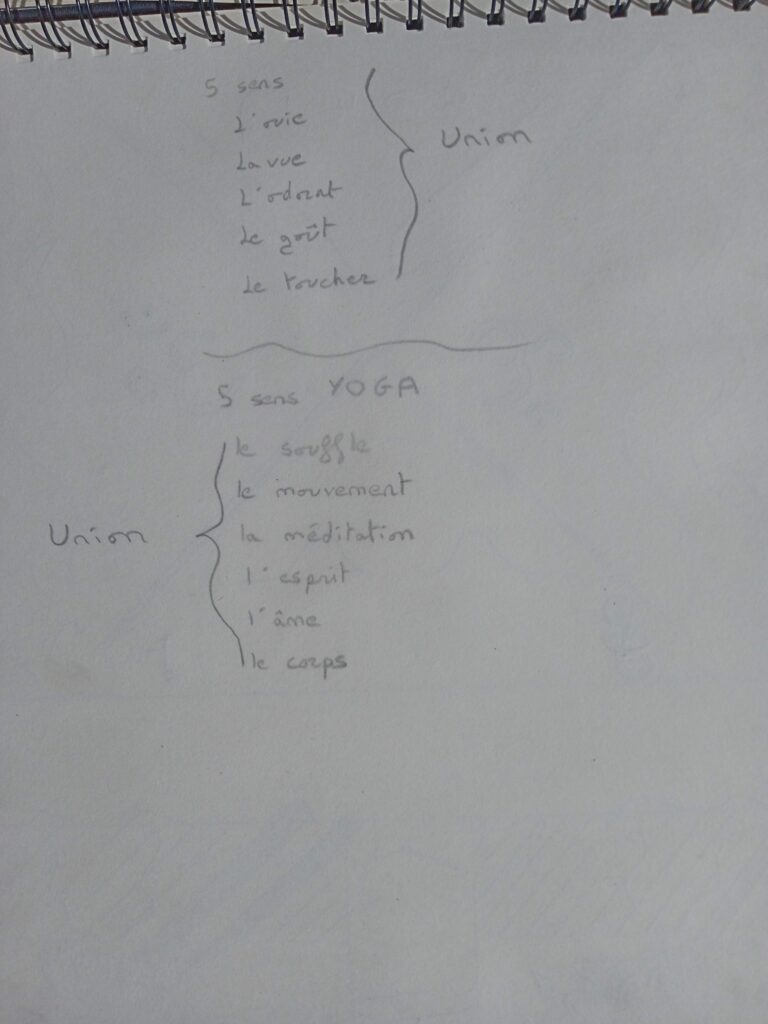 5 sens
L'ouie
La vue
L'odorat
Le goût
Le toucher
Union
5 sens YOGA
le souffle
le mouvement
la méditation
l'esprit
l'âme
le corps
Union